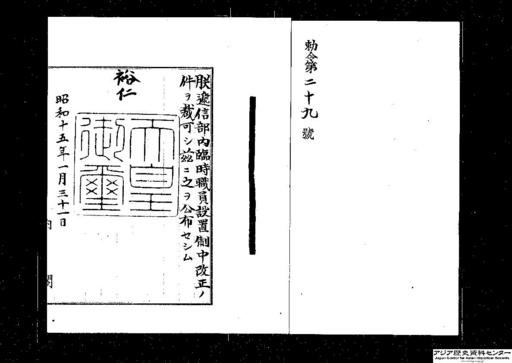 勅令第二十九號
朕遞信部內臨時職員設置制中改正ノ
件ヲ裁可シ茲ニ之ヲ公布セシム
裕仁
天皇御璽
昭和十五年一月三十一日
內閣
アジア歴史資料センター
Japan Center for Asian Historical Records